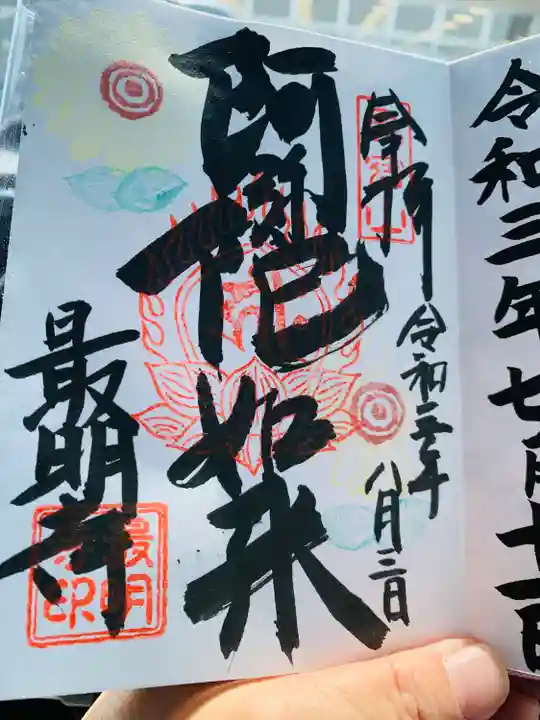 令和三年七月十一日
奉拝
令和三年
八月三日
阿弥陀如来
最明寺